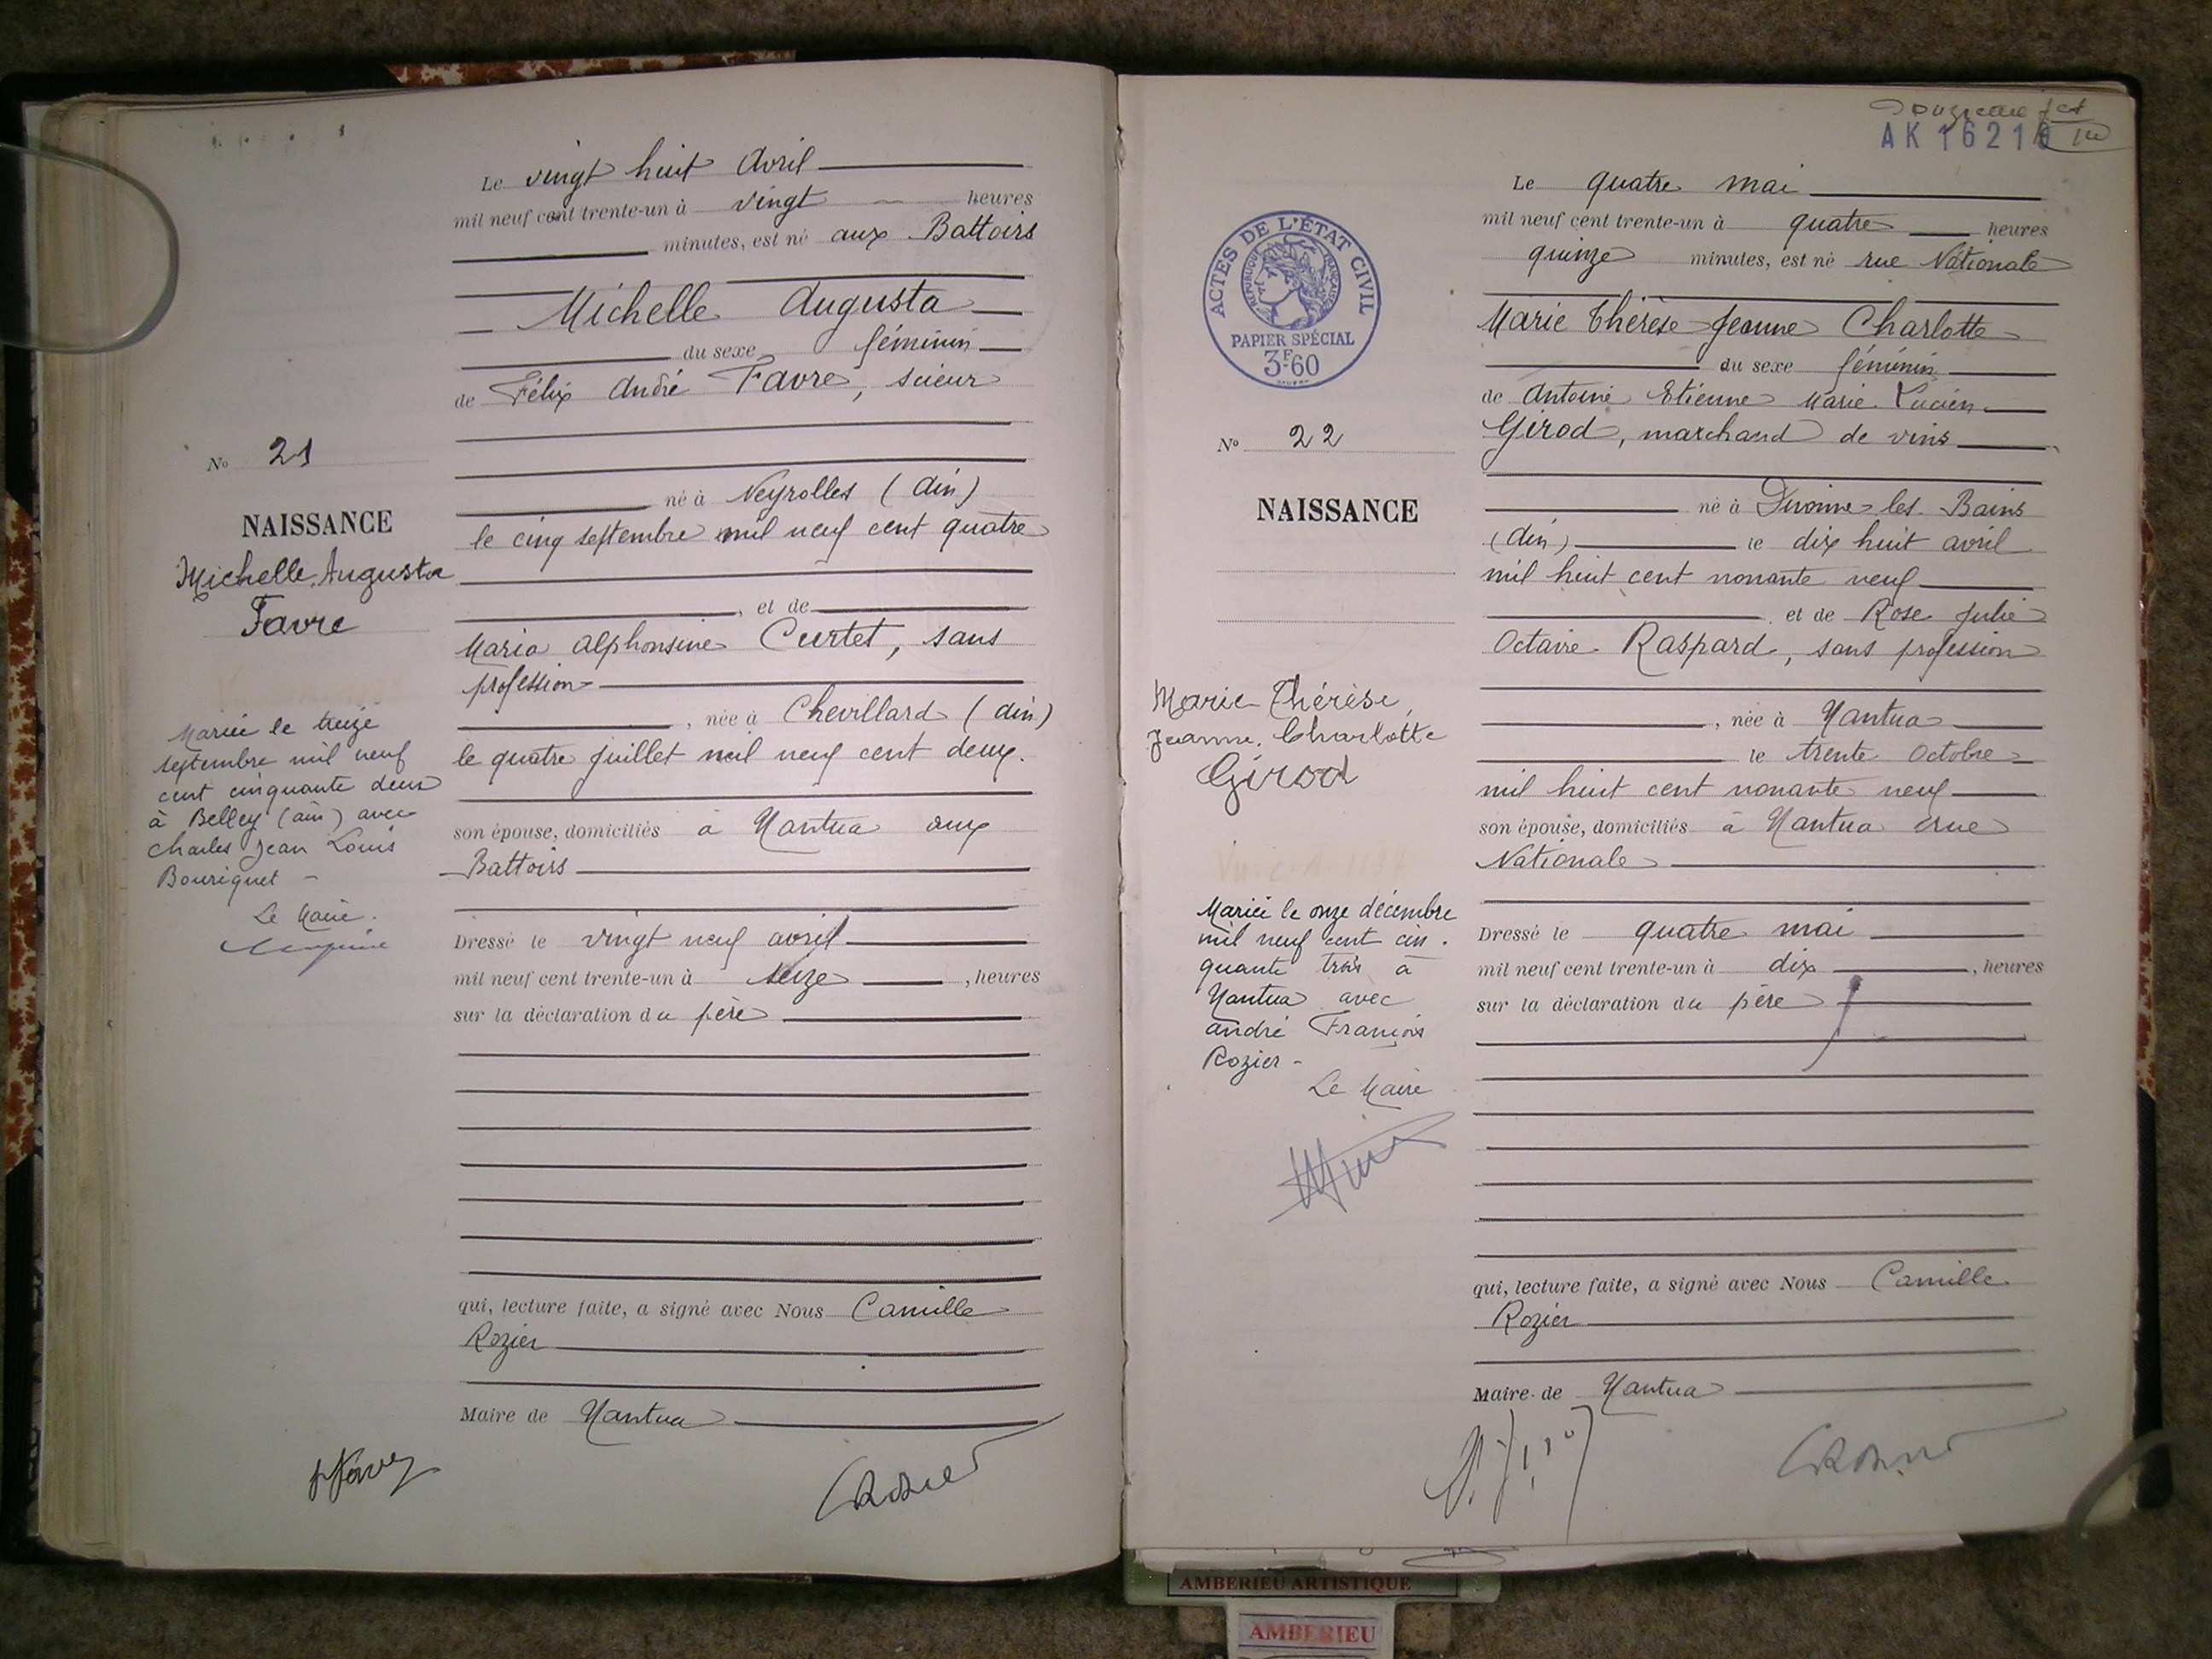 Le vingt huit Avril
mil neuf cent trente-un à vingt heures
minutes, est né aux Battoirs
Michelle Augusta
du sexe féminin
de Félix André Favre, scieur
né à Neyrolles (Ain)
le cinq septembre mil neuf cent quatre
, et de
Maria Alphonsine Curtet, sans
profession
, née à Chevillard (Ain)
le quatre juillet mil neuf cent deux.
son épouse, domiciliés à Nantua aux
Battoirs
Dressé le vingt neuf avril
mil neuf cent trente-un à seize , heures
sur la déclaration du père
qui, lecture faite, a signé avec Nous Camille
Rozier
Maire de Nantua
No 21
NAISSANCE
Michelle, Augusta
Favre
Mariée le treize
septembre mil neuf
cent cinquante deux
à Belley (ain) avec
Charles Jean Louis
Bouriquet -
Le Maire.
AK 16210
Le quatre mai
mil neuf cent trente-un à quatre heures
quinze minutes, est né rue Nationale
Marie Thérèse Jeanne Charlotte
du sexe féminin
de Antoine Etienne Marie Lucien
Girod, marchand de vins
né à Divonne-les-Bains
(Ain) le dix huit avril
mil huit cent nonante neuf
et de Rose Julie
Octavie Raspard, sans profession
, née à Nantua
le trente Octobre
mil huit cent nonante neuf
son épouse, domiciliés à Nantua rue
Nationale
Dressé le quatre mai
mil neuf cent trente-un à dix , heures
sur la déclaration du père
qui, lecture faite, a signé avec Nous Camille
Rozier
Maire de Nantua
ACTES DE L'ÉTAT CIVIL
RÉPUBLIQUE FRANÇAISE
PAPIER SPÉCIAL
3F60
No 22
NAISSANCE
Marie-Thérèse,
Jeanne, Charlotte
Girod
Mariée le onze décembre
mil neuf cent cin.
quante trois à
Nantua avec
André François
Rozier -
Le Maire
AMBERIEU ARTISTIQUE
AMBERIEU